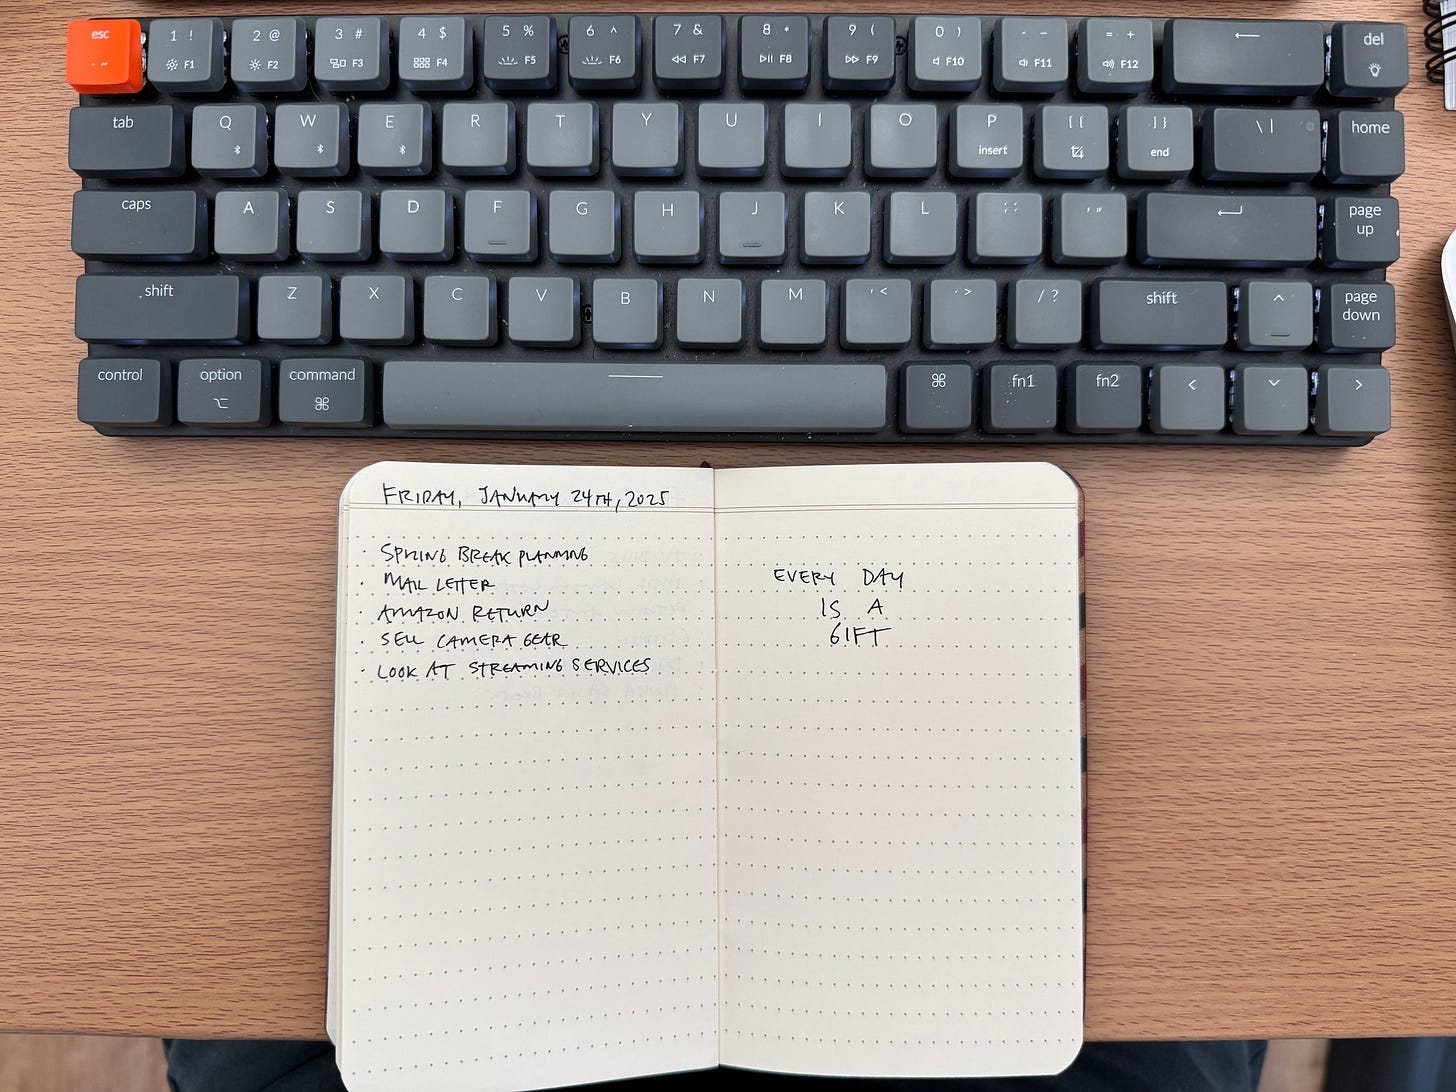 esc 1 ! 2 @ 3 # 4 $ 5 % 6 ^ 7 & 8 * 9 ( 0 ) - - = + ← del
~ F1 F2 F3 F4 F5 F6 F7 F8 F9 F10 F11 F12
tab Q W E R T Y U I O P [ { ] } \ | home
insert end
caps A S D F G H J K L ; : ' " page up
shift Z X C V B N M , < . > / ? shift ^ page down
control option command ⌘ fn1 fn2 < ⌄ >
⌥ ⌘
FRIDAY, JANUARY 24TH, 2025
· SPRING BREAK PLANNING
· MAIL LETTER
· AMAZON RETURN
· SELL CAMERA GEAR
· LOOK AT STREAMING SERVICES
EVERY DAY
IS A
GIFT